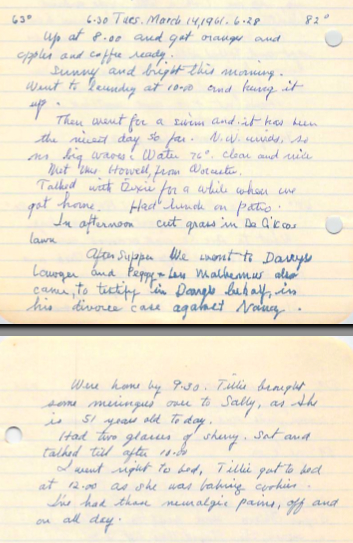 63° 6.30 Tues. March 14, 1961. 6-28 82°
Up at 8.00 and got oranges and
apples and coffee ready.
Sunny and bright this morning.
Went to laundry at 10.00 and hung it
up.
Then went for a swim and it has been
the nicest day so far. N.W. winds, so
no big waves. Water 70°. clear and nice
Met Mrs. Howell, from Worcester.
Talked with for a while when we
got home. Had lunch on patio.
In afternoon cut grass in
lawn
After Supper We went to Darryls
Lawyer and Peggy + Les also
came, to testify in Darryls behalf, in
his divorce case against Nancy.
Were home by 9.30. Tillie brought
some meringues over to Sally, as she
is 51 years old today.
Had two glasses of sherry. Sat and
talked till after 10.00
I went right to bed, Tillie got to bed
at 12.00 as she was baking cookies.
I've had those neuralgic pains, off and
on all day.